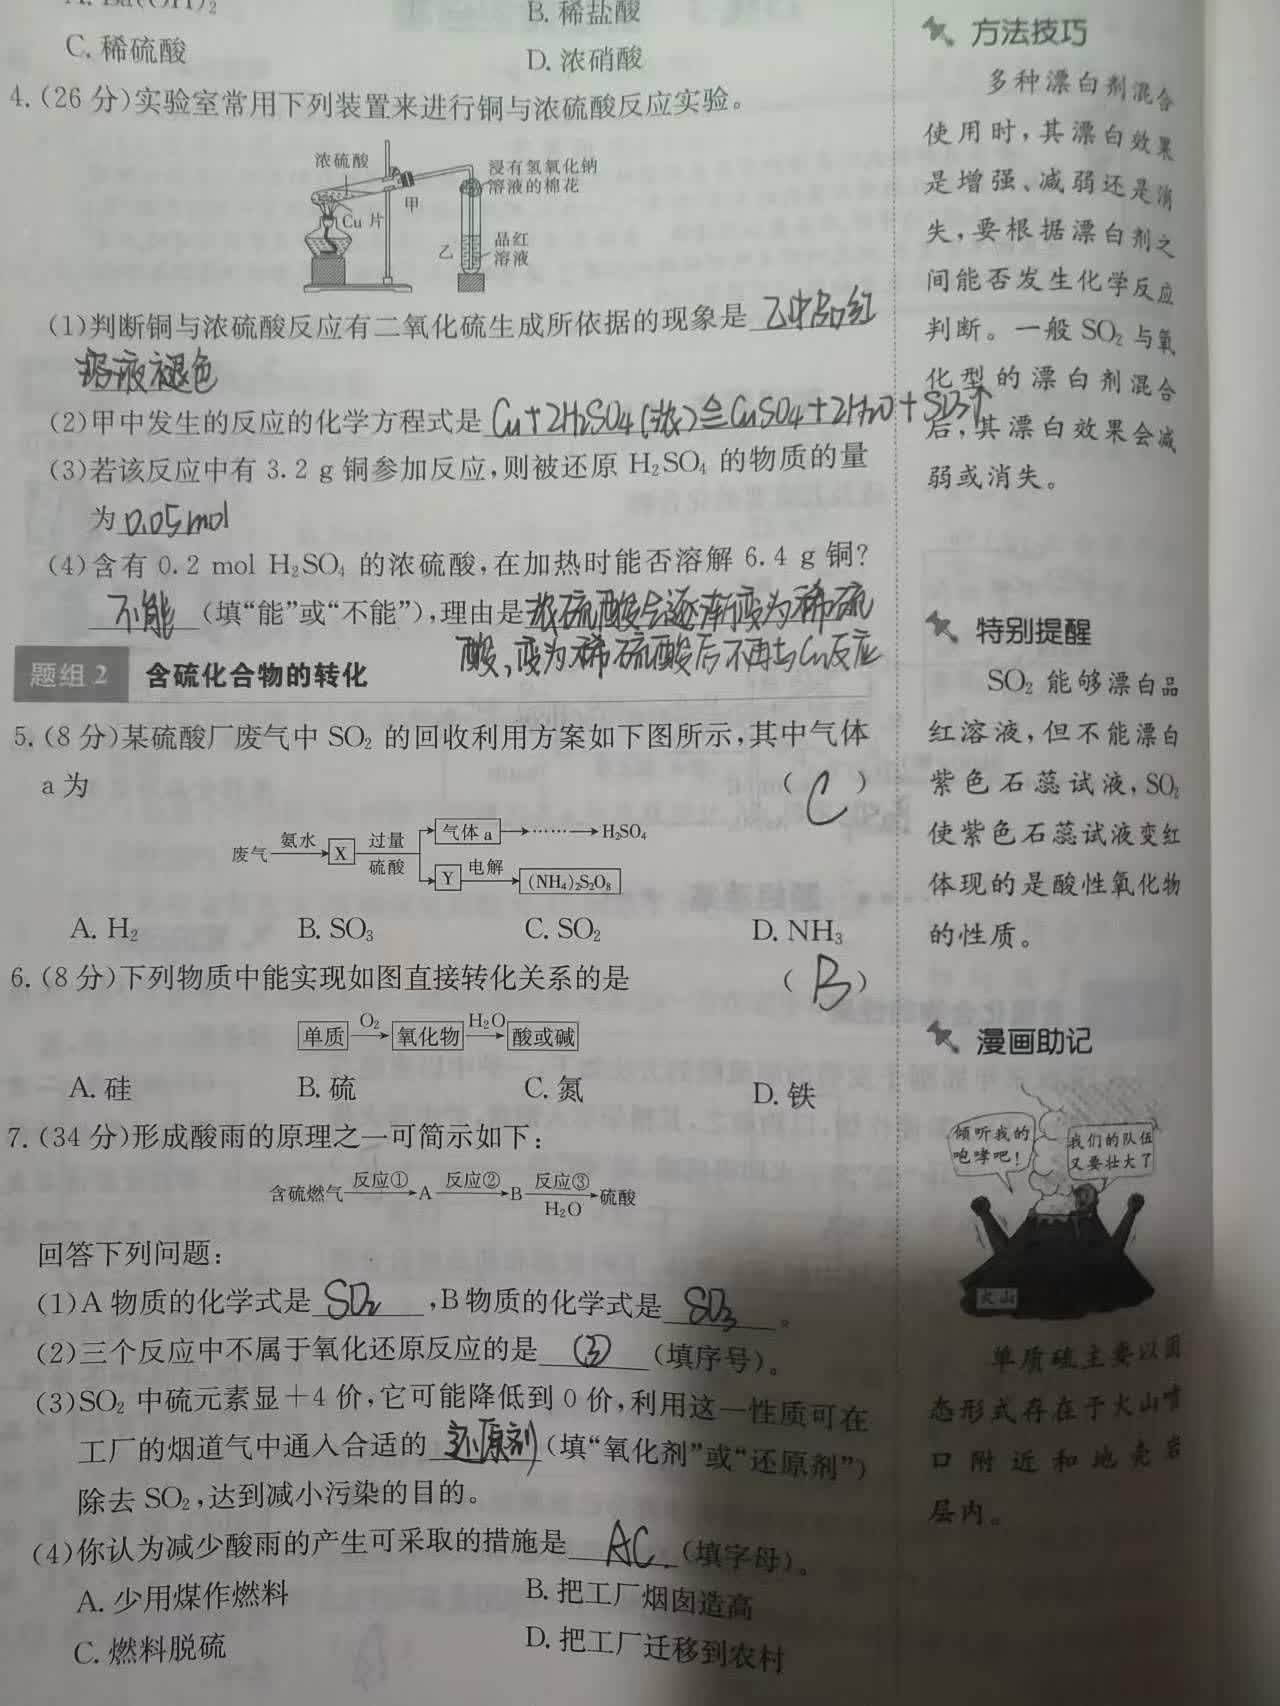 B. 稀盐酸
C. 稀硫酸
D. 浓硝酸
4. (26 分)实验室常用下列装置来进行铜与浓硫酸反应实验。
浓硫酸
浸有氢氧化钠
溶液的棉花
甲
Cu 片
乙
品红
溶液
(1)判断铜与浓硫酸反应有二氧化硫生成所依据的现象是 乙中品红
溶液褪色
(2)甲中发生的反应的化学方程式是 Cu+2H₂SO₄(浓)≙CuSO₄+2H₂O+SO₂↑
(3)若该反应中有 3.2 g 铜参加反应,则被还原 H₂SO₄ 的物质的量
为 0.05mol
(4)含有 0.2 mol H₂SO₄ 的浓硫酸,在加热时能否溶解 6.4 g 铜?
不能 (填“能”或“不能”),理由是 浓硫酸会逐渐变为稀硫
酸,变为稀硫酸后不再与Cu反应
题组 2 含硫化合物的转化
5. (8 分)某硫酸厂废气中 SO₂ 的回收利用方案如下图所示,其中气体
a 为 ( C )
废气 氨水 X 过量 硫酸 气体 a ⋯⋯ H₂SO₄
Y 电解 (NH₄)₂S₂O₈
A. H₂ B. SO₃ C. SO₂ D. NH₃
6. (8 分)下列物质中能实现如图直接转化关系的是 ( B )
单质 O₂ 氧化物 H₂O 酸或碱
A. 硅 B. 硫 C. 氮 D. 铁
7. (34 分)形成酸雨的原理之一可简示如下:
含硫燃气 反应① A 反应② B 反应③ H₂O 硫酸
回答下列问题:
(1)A 物质的化学式是 SO₂ ,B 物质的化学式是 SO₃ 。
(2)三个反应中不属于氧化还原反应的是 ③ (填序号)。
(3)SO₂ 中硫元素显+4 价,它可能降低到 0 价,利用这一性质可在
工厂的烟道气中通入合适的 还原剂 (填“氧化剂”或“还原剂”)
除去 SO₂,达到减小污染的目的。
(4)你认为减少酸雨的产生可采取的措施是 AC. (填字母)。
A. 少用煤作燃料 B. 把工厂烟囱造高
C. 燃料脱硫 D. 把工厂迁移到农村
方法技巧
多种漂白剂混合
使用时,其漂白效果
是增强、减弱还是消
失,要根据漂白剂之
间能否发生化学反应
判断。一般 SO₂ 与氧
化型的漂白剂混合
后,其漂白效果会减
弱或消失。
特别提醒
SO₂ 能够漂白品
红溶液,但不能漂白
紫色石蕊试液,SO₂
使紫色石蕊试液变红
体现的是酸性氧化物
的性质。
漫画助记
倾听我的
咆哮吧!
我们的队伍
又要壮大了
火山
单质硫主要以固
态形式存在于火山喷
口附近和地壳岩
层内。